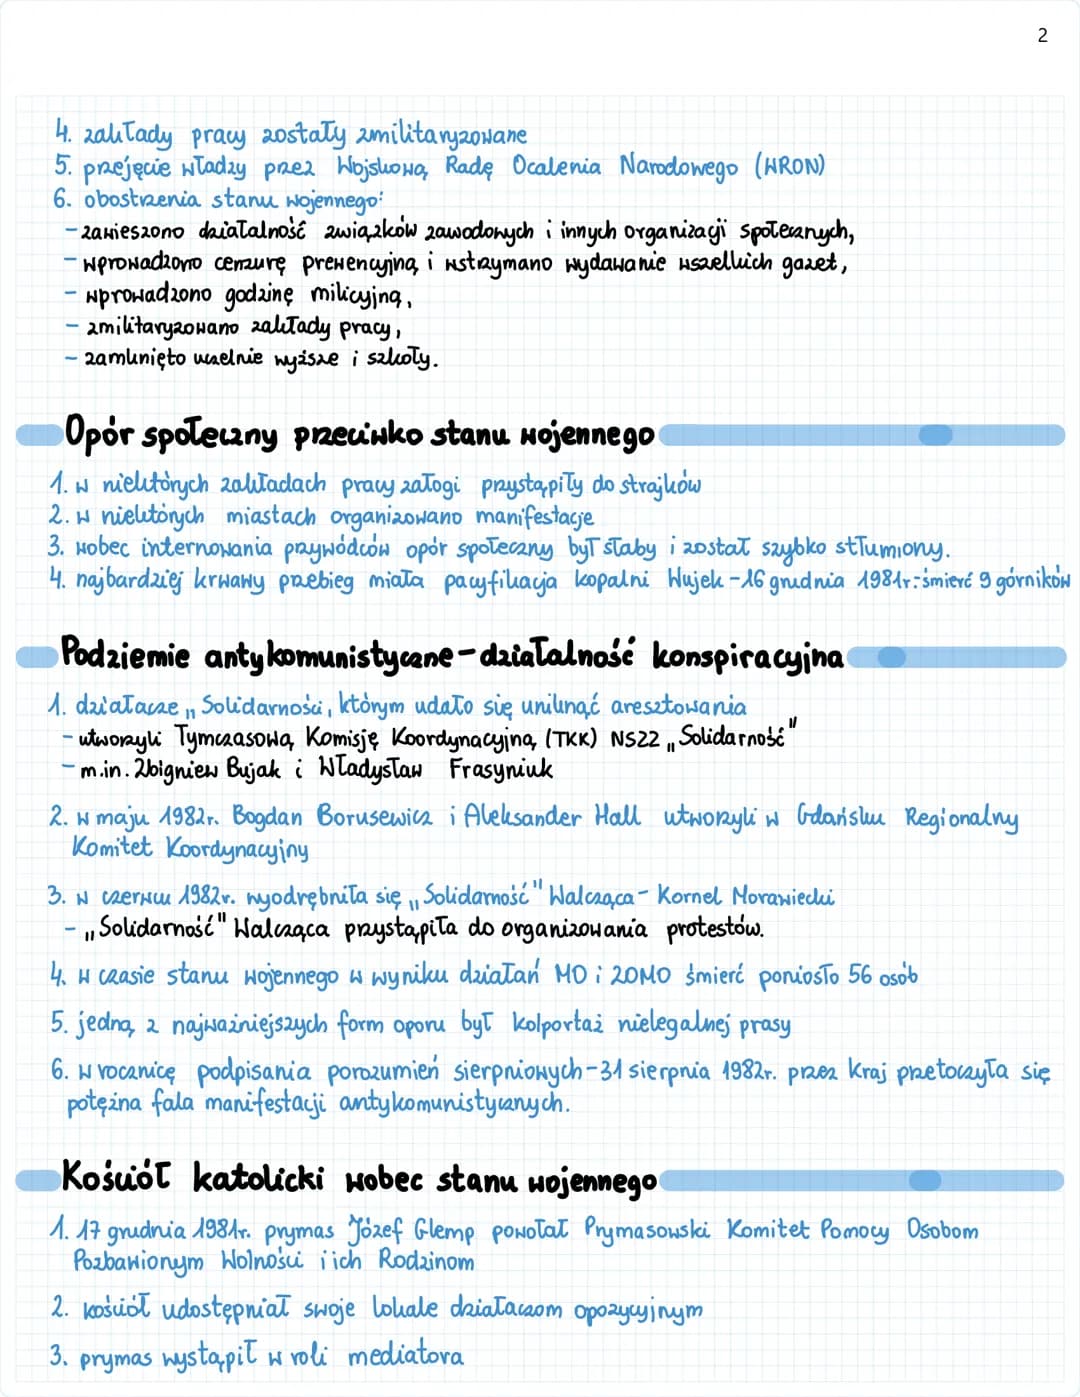 2
4. zakłady pracy zostały zmilitaryzowane
5. przejęcie władzy przez Wojskową Radę Ocalenia Narodowego (WRON)
6. obostrzenia stanu wojennego:
- zawieszono działalność związków zawodowych i innych organizacji społecznych,
- wprowadzono cenzurę prewencyjną i wstrzymano wydawanie wszelkich gazet,
- wprowadzono godzinę milicyjną,
- zmilitaryzowano zakłady pracy,
- zamknięto uczelnie wyższe i szkoły.
Opór społeczny przeciwko stanu wojennego
1. w niektórych zakładach pracy załogi przystąpiły do strajków
2. w niektórych miastach organizowano manifestacje
3. wobec internowania przywódców opór społeczny był słaby i został szybko stłumiony.
4. najbardziej krwawy przebieg miała pacyfikacja kopalni Wujek - 16 grudnia 1981r: śmierć 9 górników
Podziemie antykomunistyczne - działalność konspiracyjna
1. działacze „Solidarności, którym udało się uniknąć aresztowania
- utworzyli Tymczasową Komisję Koordynacyjną (TKK) NSZZ „Solidarność"
- m.in. Zbigniew Bujak i Władysław Frasyniuk
2. w maju 1982r. Bogdan Borusewicz i Aleksander Hall utworzyli w Gdańsku Regionalny
Komitet Koordynacyjny
3. w czerwcu 1982r. wyodrębniła się „Solidarność" Walcząca - Kornel Morawiecki
- „Solidarność" Walcząca przystąpiła do organizowania protestów.
4. w czasie stanu wojennego w wyniku działań MO i ZOMO śmierć poniosło 56 osób
5. jedną z najważniejszych form oporu był kolportaż nielegalnej prasy
6. w rocznicę podpisania porozumień sierpniowych - 31 sierpnia 1982r. przez kraj przetoczyła się
potężna fala manifestacji antykomunistycznych.
Kościół katolicki wobec stanu wojennego
1. 17 grudnia 1981r. prymas Józef Glemp powołał Prymasowski Komitet Pomocy Osobom
Pozbawionym Wolności i ich Rodzinom
2. kościół udostępniał swoje lokale działaczom opozycyjnym
3. prymas wystąpił w roli mediatora